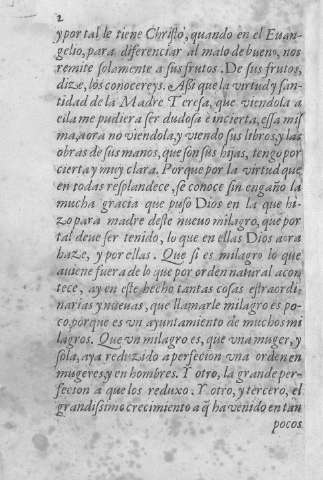 2
y por tal le tiene Christo, quando en el Euan-
gelio, para diferenciar al malo de bueno, nos
remite solamente a sus frutos. De sus frutos,
dize, los conocereys. Assi que la virtud y san-
tidad de la Madre Teresa, que viendola a
ella me pudiera ser dudosa e incierta, essa mis
ma, aora no viendola, y viendo sus libros, y las
obras de sus manos, que son sus hijas, tengo por
cierta y muy clara. Porque por la virtud que
en todas resplandece, se conoce sin engaño la
mucha gracia que puso Dios en la que hi-
zo para madre deste nueuo milagro, que por
tal deue ser tenido, lo que en ellas Dios aora
haze, y por ellas. Que si es milagro lo que
auiene fuera de lo que por orden natural acon
tece, ay en este hecho tantas cosas estraordi-
narias y nueuas, que llamarle milagro es po-
co, porque es vn ayuntamiento de muchos mi
lagros. Que vn milagro es, que vna muger, y
sola, aya reduzado a perfecion vna orden en
mugeres, y en hombres. Y otro, la grande per-
fecion a que los reduxo. Y otro, y tercero, el
grandissimo crecimiento a q̃ ha venido en tan
pocos